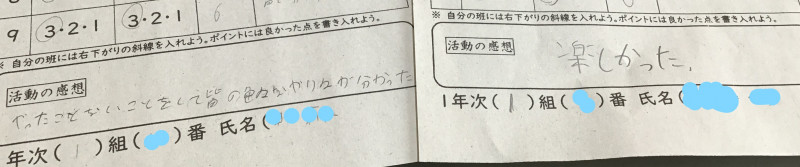 9 3・2・1 3・2・1 6
※ 自分の班には右下がりの斜線を入れよう。ポイントには良かった点を書き入れよう。
活動の感想
やったことないことをして皆の色々なやり方が分かった
年次(1)組( )番 氏名(
※ 自分の班には右下がりの斜線を入れよう。ポイントには良かった点を書き入れよう。
活動の感想
楽しかった。
1年次(1)組( )番 氏名(